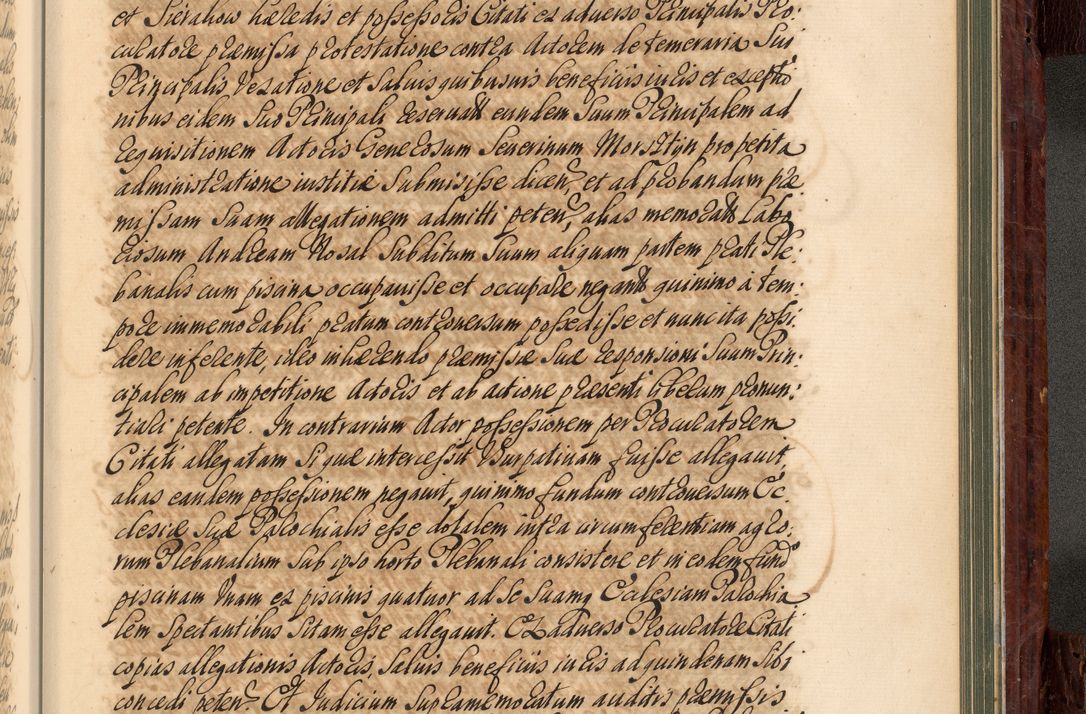 et Sierakow hæredis et possessoris Citati ex adverso Principalis Pro:
curatore præmissa protestatione contra Actorem de temeraria Sui
Principalis vexatione et Salvis quibusvis beneficiis iuris et exceptio
nibus eidem Suo Principali reservatt eundem Suum Principalem ad
requisitionem Actoris Generosum Severinum Morsztijn pro petita
administratione iustitiæ Submisisse dicen, et ad probandum præ
missam Suam allegationem admitti peten, alias memoratt Labo
riosum Andream Nosal Subditum Suum aliquam partem prati Ple:
banalis cum piscina occupavisse et occupare negantt quinimo à tem:
pore immemorabili pratum controversum possedisse et nunc ita possi
dere inferente, ideo inhærendo præmissæ Suæ responsioni Suum Prin:
cipalem ab impetitione Actoris et ab actione præsenti liberum pronun:
tiari petente. In contrarium Actor possessionem per Procuratorem
Citati allegatam Si quæ intercessit Usurpativam fuisse allegavit,
alias eandem possessionem negavit, quinimo fundum controversum Ec:
clesiæ Suæ Parochialis esse dotalem intra circumferentiam agro:
rum Plebanalium Sub ipso horto Plebanali consistere et in eodem fundo
piscinam Unam ex piscinis quatuor ad Se Suamq Ecclesiam Parochia
lem Spectantibus Sitam esse allegavit. Ex adverso Procuratore Citati
copias allegationis Actoris, Salvis beneficiis iuris ad quindenam Sibi
concedi peten. Et Iudicium Supramemoratum auditis præmissis